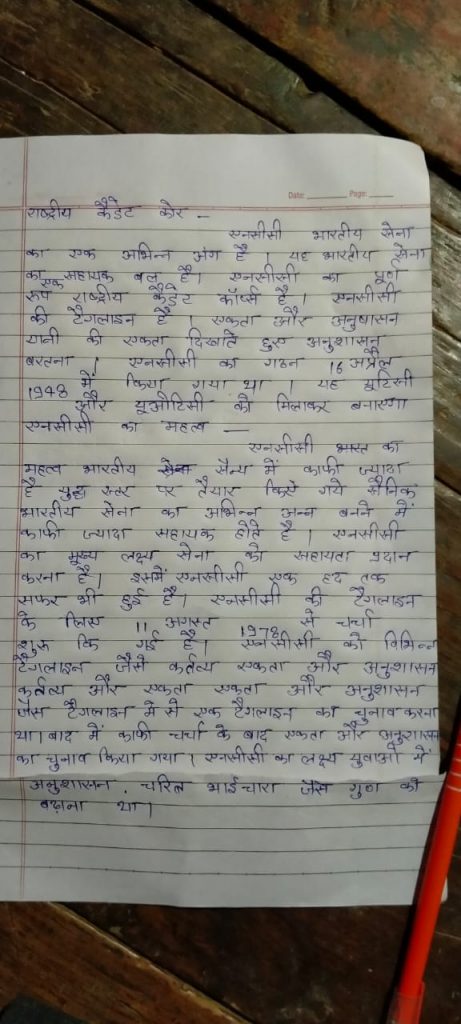 Date: Page:
राष्ट्रीय कैडेट कोर -
एनसीसी भारतीय सेना
का एक अभिन्न अंग है । यह भारतीय सेना
का एक सहायक बल है। एनसीसी का पूर्ण
रूप राष्ट्रीय कैडेट कॉर्प्स है । एनसीसी
की टैगलाइन है । एकता और अनुषासन
यानी की एकता दिखाते हुए अनुशासन
बरतना । एनसीसी का गठन 16 अप्रैल
1948 में किया गया था । यह यूटिसी
और यूओटिसी को मिलाकर बनाएगा
एनसीसी का महत्व -
एनसीसी भारत का
महत्व भारतीय सैन्य में काफी ज्यादा
है युद्ध स्तर पर तैयार किसे गये सैनिक
भारतीय सेना का अभिन्न अन्न बनने में
काफी ज्यादा सहायक होते है । एनसीसी
का मूख्य लक्ष्य सेना को सहायता प्रदान
करना है । इसमें एनसीसी एक हद तक
सफर भी हुई है। एनसीसी की टैगलाइन
के लिए 11 अगस्त 1978 से चर्चा
शुरू कि गई है। एनसीसी को विभिन्न
टैगलाइन जैसे कर्तव्य एकता और अनुशासन
कर्तव्य और एकता एकता और अनुशासन
जैसे टैगलाइन में से एक टैगलाइन का चुनाव करना
था। बाद में काफी चर्चा के बाद एकता और अनुशासन
का चुनाव किया गया । एनसीसी का लक्ष्य युवाओं में
अनुशासन , चरित्र भाईचारा जैसे गुण को
बढ़ाना था।